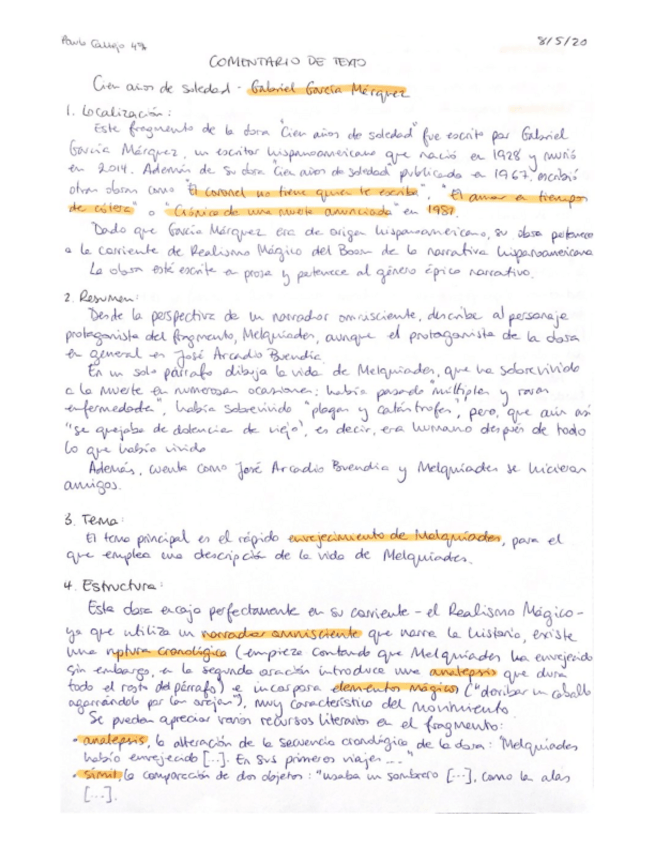 Paula Callejo 4ºB 8/5/20
COMENTARIO DE TEXTO
Cien años de soledad - Gabriel García Márquez
1. Localización:
Este fragmento de la obra "Cien años de soledad" fue escrito por Gabriel
García Márquez, un escritor hispanoamericano que nació en 1928 y murió
en 2014. Además de su obra "Cien años de soledad" publicada en 1967, escribió
otras obras como "El coronel no tiene quien le escriba", "El amor a tiempos
de cólera" o "Crónica de una muerte anunciada" en 1981.
Dado que García Márquez era de origen hispanoamericano, su obra pertenece
a la corriente de Realismo Mágico del Boom de la narrativa hispanoamericana
La obra está escrita en prosa y pertenece al género épico narrativo.
2. Resumen:
Desde la perspectiva de un narrador omnisciente, describe al personaje
protagonista del fragmento, Melquíades, aunque el protagonista de la obra
en general es José Arcadio Buendía.
En un solo párrafo dibuja la vida de Melquíades, que ha sobrevivido
a la muerte en numerosas ocasiones: había pasado "múltiples y raras
enfermedades", había sobrevivido "plagas y catástrofes", pero, que aún así
"se quejaba de dolencias de viejo", es decir, era humano después de todo
lo que había vivido
Además, cuenta como José Arcadio Buendía y Melquíades se hicieran
amigos.
3. Tema:
El tema principal es el rápido envejecimiento de Melquíades, para el
que emplea una descripción de la vida de Melquíades.
4. Estructura:
Esta obra encaja perfectamente en su corriente - el Realismo Mágico -
ya que utiliza un narrador omnisciente que narra la historia, existe
una ruptura cronológica (empieza contando que Melquíades ha envejecido
sin embargo, en la segunda oración introduce una analepsis que dura
todo el resto del párrafo) e incorpora elementos mágicos ("derribar un caballo
agarrándolo por las orejas"), muy característico del movimiento
Se pueden apreciar varios recursos literarios en el fragmento:
• analepsis, la alteración de la secuencia cronológica de la obra: "Melquíades
había envejecido [...]. En sus primeros viajes ..."
• símil, la comparación de dos objetos: "usaba un sombrero [...], como las alas
[...].